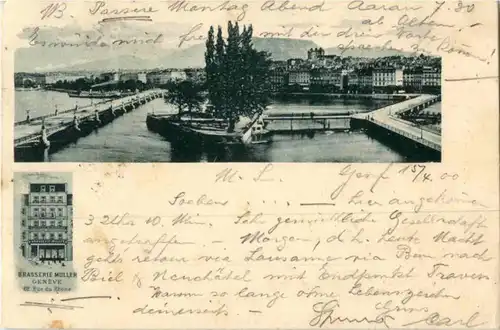 WB. Passere Montag Abend Aarau 7.30
ab Olten
Erwünsche mich
mit der drei
sprechen zu können.
M. L. Genf 15/4.00
Soeben ... — hier angekommen
3 Uhr 10 Min. Sehr gemütlich Gesellschaft
angetroffen — Morgen, d.h. heute Nacht
gehts retour via Lausanne via Bern nach
Biel & Neuchâtel mit Endpunkt
Warum so lange ohne Lebenszeichen
deinerseits. — Gruss
Carl
BRASSERIE MULLER
GENÈVE
Rue du Rhône